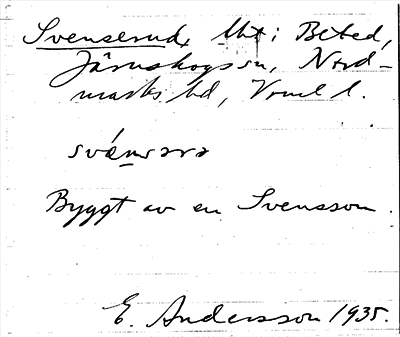 Svenserud, lht i Beted,
Järnskogs sn, Nord-
marks hd, Vrml l.
svǽnsərə
Byggt av en Svensson.
E. Andersson 1935.